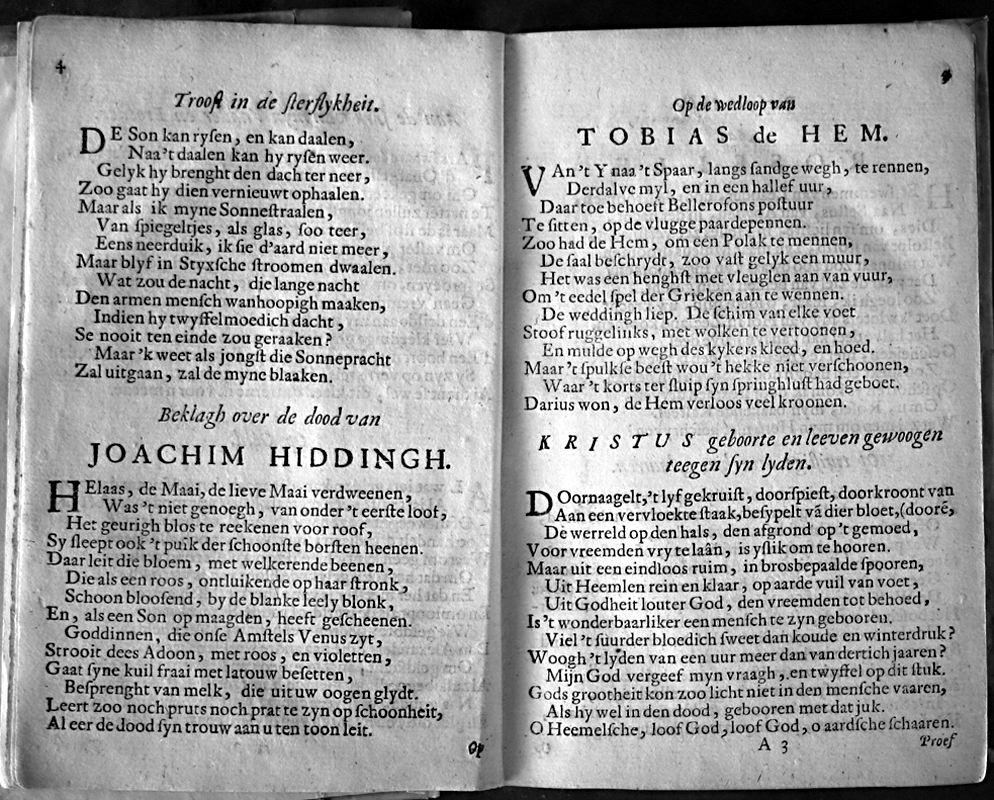 4
Troost in de sterflykheit.
DE Son kan rysen, en kan daalen,
Naa 't daalen kan hy rysen weer.
Gelyk hy brenght den dach ter neer,
Zoo gaat hy dien vernieuwt ophaalen.
Maar als ik myne Sonnestraalen,
Van spiegeltjes, als glas, soo teer,
Eens neerduik, ik sie d'aard niet meer,
Maar blyf in Styxsche stroomen dwaalen.
Wat zou de nacht, die lange nacht
Den armen mensch wanhoopigh maaken,
Indien hy twyffelmoedich dacht,
Se nooit ten einde zou geraaken?
Maar 'k weet als jongst die Sonnepracht
Zal uitgaan, zal de myne blaaken.
Beklagh over de dood van
JOACHIM HIDDINGH.
HElaas, de Maai, de lieve Maai verdweenen,
Was 't niet genoegh, van onder 't eerste loof,
Het geurigh blos te reekenen voor roof,
Sy sleept ook 't puik der schoonste borsten heenen.
Daar leit die bloem, met welkerende beenen,
Die als een roos, ontluikende op haar stronk,
Schoon bloosend, by de blanke leely blonk,
En, als een Son op maagden, heeft gescheenen.
Goddinnen, die onse Amstels Venus zyt,
Strooit dees Adoon, met roos, en violetten,
Gaat syne kuil fraai met latouw besetten,
Besprenght van melk, die uit uw oogen glydt.
Leert zoo noch pruts noch prat te zyn op schoonheit,
Al eer de dood syn trouw aan u ten toon leit.
Op
Op de wedloop van
TOBIAS de HEM.
VAn 't Y naa 't Spaar, langs sandge wegh, te rennen,
Derdalve myl, en in een hallef uur,
Daar toe behoeft Bellerofons postuur
Te sitten, op de vlugge paardepennen.
Zoo had de Hem, om een Polak te mennen,
De saal beschrydt, zoo vast gelyk een muur,
Het was een henghst met vleuglen aan van vuur,
Om 't eedel spel der Grieken aan te wennen.
De weddingh liep. De schim van elke voet
Stoof ruggelinks, met wolken te vertoonen,
En mulde op wegh des kykers kleed, en hoed.
Maar 't spulkse beest wou 't hekke niet verschoonen,
Waar 't korts ter sluip syn springhlust had geboet.
Darius won, de Hem verloos veel kroonen.
KRISTUS geboorte en leeven gewoogen
teegen syn lyden.
DOornaagelt, 't lyf gekruist, doorspiest, doorkroont van
Aan een vervloekte staak, besypelt vā dier bloet, (doorē,
De werreld op den hals, den afgrond op 't gemoed,
Voor vreemden vry te laân, is yslik om te hooren.
Maar uit een eindloos ruim, in brosbepaalde spooren,
Uit Heemlen rein en klaar, op aarde vuil van voet,
Uit Godheit louter God, den vreemden tot behoed,
Is 't wonderbaarliker een mensch te zyn gebooren.
Viel 't suurder bloedich sweet dan koude en winterdruk?
Woogh 't lyden van een uur meer dan van dertich jaaren?
Mijn God vergeef myn vraagh, en twyffel op dit stuk.
Gods grootheit kon zoo licht niet in den mensche vaaren,
Als hy wel in den dood, gebooren met dat juk.
O Heemelsche, loof God, loof God, o aardsche schaaren.
A 3
Proef